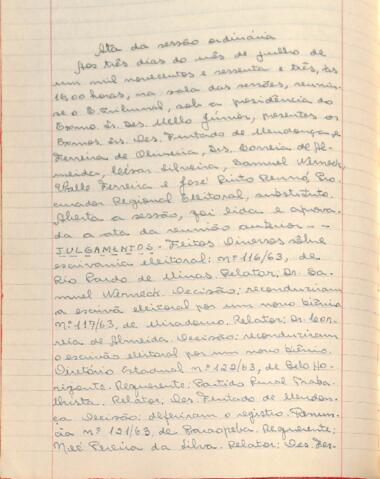 Ata da sessão ordinária
Aos três dias do mês de julho de
um mil novecentos e sessenta e três, às
16,00 horas, na sala das sessões, reuniu-
se o E. Tribunal, sob a presidência do
Exmo. Sr. Des. Mello Júnior, presentes os
Exmos. Srs. Des. Furtado de Mendonça e
Ferreira de Oliveira, Drs. Correia de Al-
meida, César Silveira, Samuel Werneck,
Valle Ferreira e José Pinto Renno, Pro-
curador Regional Eleitoral, substituto.
Aberta a sessão, foi lida e aprova-
da a ata da reunião anterior. - -
JULGAMENTOS. Feitos Diversos sôbre
escrivania eleitoral: nº 116/63, de
Rio Pardo de Minas. Relator: Dr. Sa-
muel Werneck. Decisão: reconduziram
a escrivã eleitoral por um novo biênio.
Nº 117/63, de Miradouro. Relator: Dr. Cor-
reia de Almeida. Decisão: reconduziram
o escrivão eleitoral por um novo biênio.
Diretório Estadual nº 122/63, de Belo Ho-
rizonte. Requerente: Partido Rural Traba-
lhista. Relator: Des. Furtado de Mendon-
ça. Decisão: deferiram o registro. Renún-
cia nº 121/63, de Paraopeba. Requerente:
Pereira da Silva. Relator: Des. Fer-